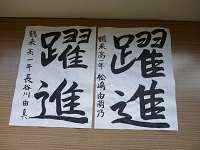 躍進
鶴来高一年 松嶋由萌乃
躍進
鶴来高一年 長谷川由真